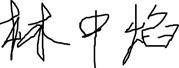 林中焰